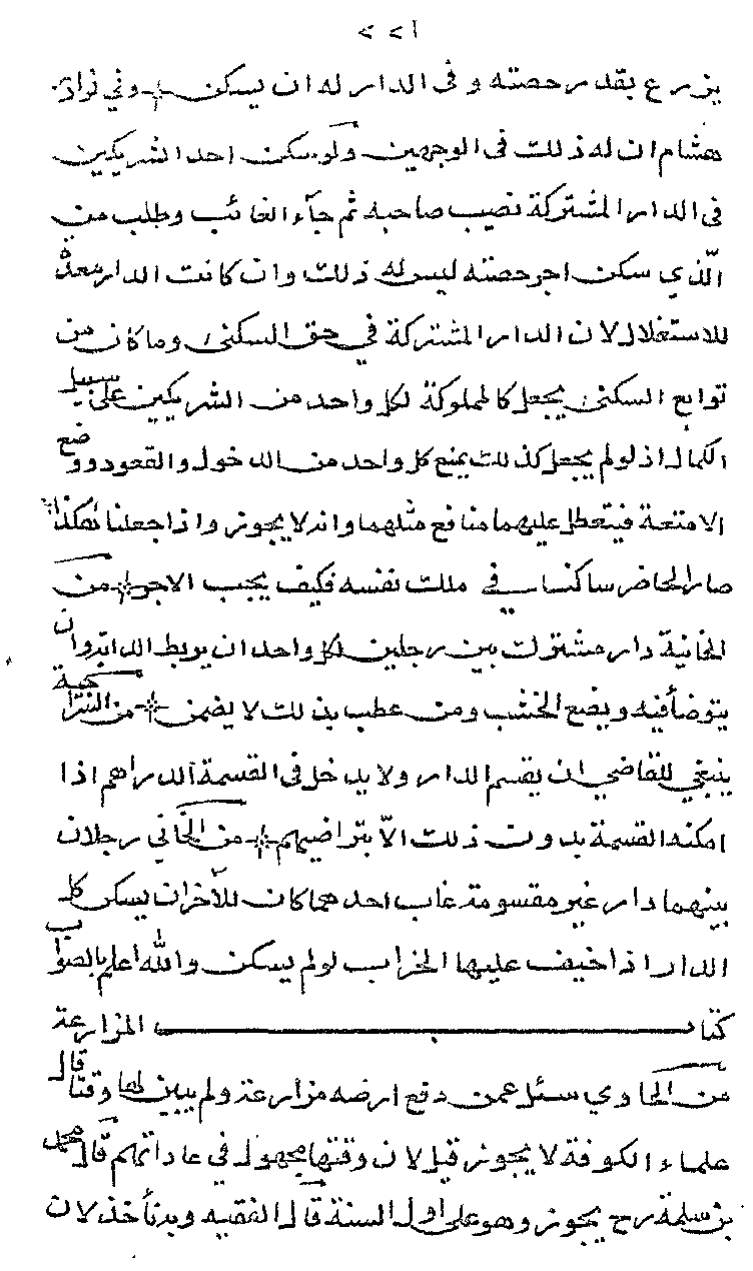 ٢٢١
يزرع بقدر حصته وفي الدار له ان يسكن وفي نوادر
هشام ان له ذلك في الوجهين ولو سكن احد الشريكين
في الدار المشتركة نصيب صاحبه ثم جآء الغائب وطلب من
الّذي سكن اجر حصته ليس له ذلك وان كانت الدار معدة
للاستغلال لان الدار المشتركة في حق السكنى وما كان من
توابع السكنى يجعل كالمملوكة لكل واحد من الشريكين على سبيل
الكمال اذ لو لم يجعل كذلك يمنع كل واحد من الدخول والقعود ووضع
الامتعة فيتعطل عليهما منافع مثلهما وانه لا يجوز واذا جعلنا هكذا
صار الحاضر ساكنا في ملك نفسه فكيف يجب الاجر من
الخانية دار مشترك بين رجلين لكل واحد ان يربط الدابة وان
يتوضأ فيه ويضع الخشب ومن عطب بذلك لا يضمن من السراجية
ينبغي للقاضي ان يقسم الدار ولا يدخل في القسمة الدراهم اذا
امكنه القسمة بدون ذلك الّا بتراضيهم من الخاني رجلان
بينهما دار غير مقسومة غاب احدهما كان للآخر ان يسكن كل
الدار اذا خيف عليها الخراب لو لم يسكن والله اعلم بالصواب
كتاب المزارعة
من الحاوي سئل عمن دفع ارضه مزارعة ولم يبين لها وقتا قال
علماء الكوفة لا يجوز قيل لان وقتها مجهول في عاداتهم قال محمد
بن سلمة رح يجوز وهو على اول السنة قال الفقيه وبه نأخذ لان